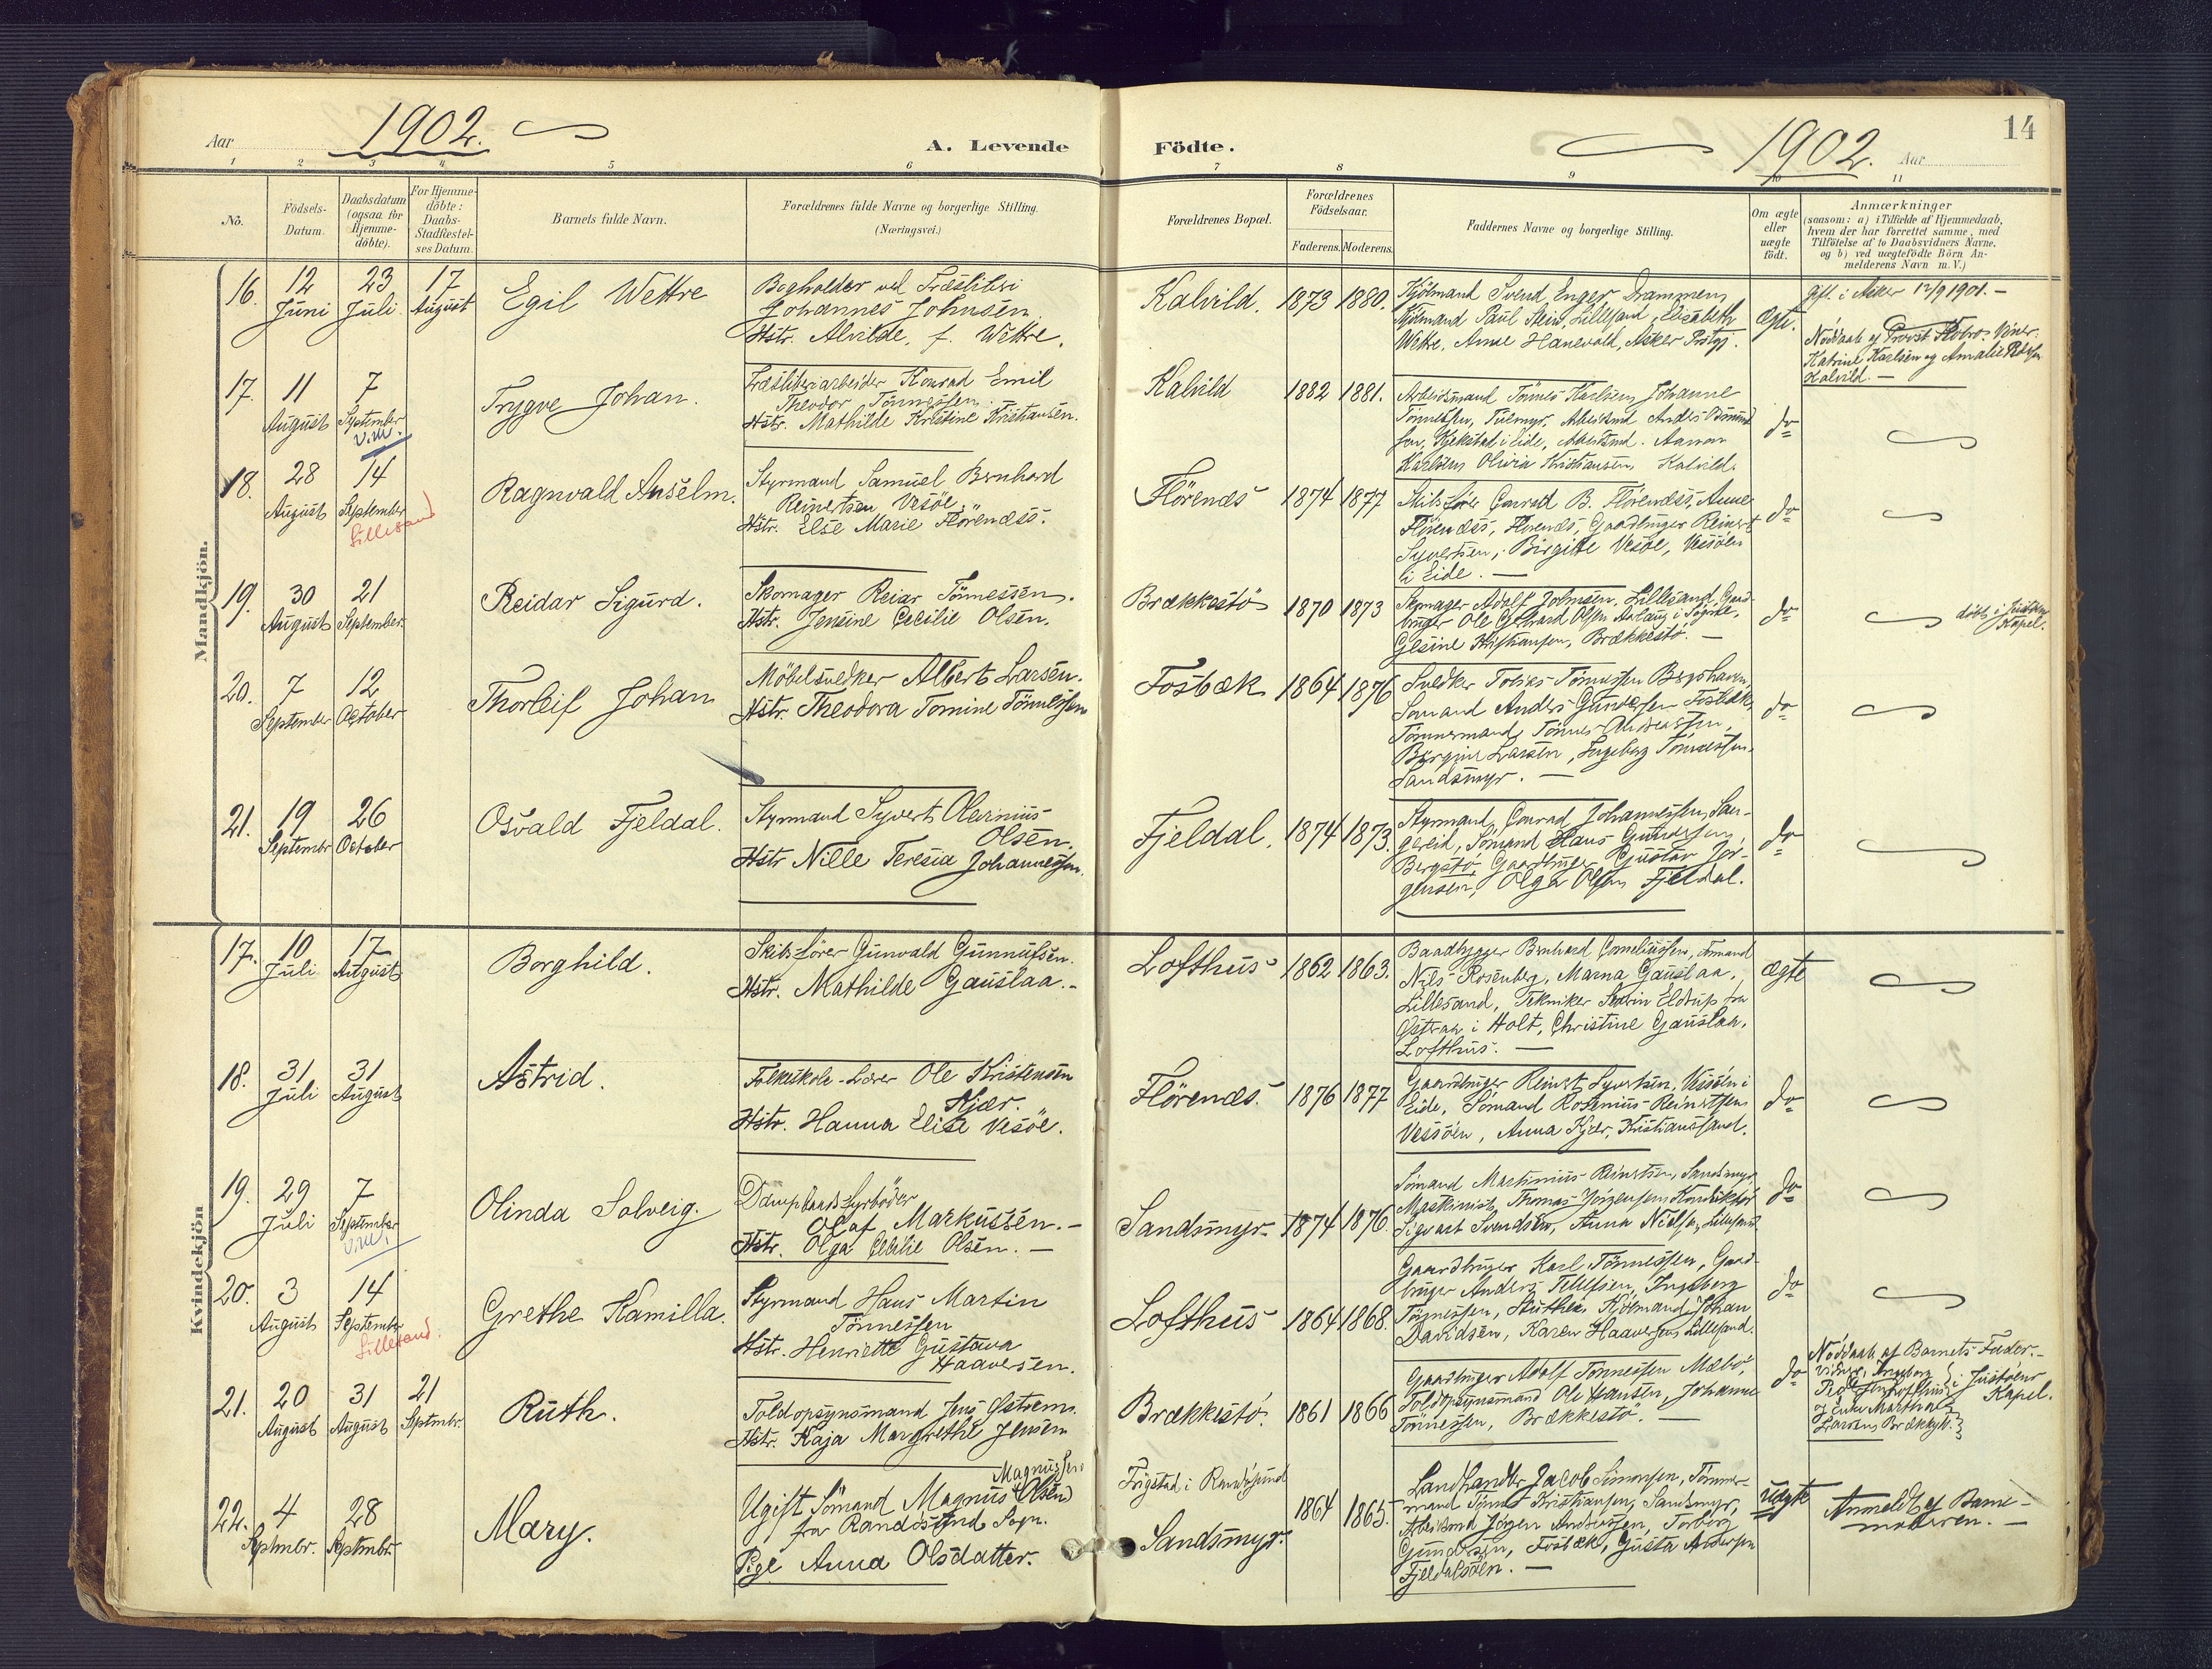 Aar 1902.
A. Levende Födte.
1902. Aar
14
1 2 3 4 5 6 7 8 9 10 11
No.
Födsels-
Datum.
Daabsdatum
(ogsaa for
Hjemme-
döbte).
For Hjemme-
döbte:
Daabs-
Stadfæstel-
ses Datum.
Barnets fulde Navn.
Forældrenes fulde Navne og borgerlige Stilling.
(Næringsvei.)
Forældrenes Bopæl.
Forældrenes
Födselsaar.
Faderens. Moderens.
Faddernes Navne og borgerlige Stilling.
Om ægte
eller
uægte
födt.
Anmærkninger
(saasom: a) i Tilfælde af Hjemmedaab,
hvem der har forrettet samme, med
Tilföielse af to Daabsvidners Navne,
og b) ved uægtefödte Börn An-
melderens Navn m. V.)
Mandkjön.
16. 12 Juni 23 Juli 17 August
Egil Wettre
Bogholder ved Træsliberi
Johannes Johnsen
Hstr. Alvilde, f. Wettre.
Kalvild. 1873 1880.
Kjöbmand Svend Enger, Drammen,
Kjöbmand Paul Stein, Lillesand, Elisabeth
Wettre, Anne Hanevold, Asker Prstgj.
Ægte.
Gift i Asker 12/9 1901. –
Nöddaab af Provst
Katrine Karlsen og Amalie
Kalvild. –
17. 11 August 7 September
V.M.
Trygve Johan.
Træsliberiarbeider Konrad Emil
Theodor Tönnessen.
Hstr. Mathilde Kristine Kristiansen.
Kalvild 1882 1881.
Arbeidsmand Tönnes Karlsen, Johanne
Tönnessen, Tuemyr, Arbeidsmd Anders
sen, Kjekstad i Eide, Arbeidsmd. Aanon
Karlsen, Olivia Kristiansen, Kalvild.
do
18. 28 August 14 September
Lillesand
Ragnvald Anselm.
Styrmand Samuel Bernhard
Reinertsen Vesöe,
Hstr. Else Marie Flörenæss.
Flörenæs 1874 1877
Skibsförer Conrad B. Flörenæss, Anne
Flörenæss, Flörenæs, Gaardbruger Reinert
Syvertsen, Birgitte Vesöe, Vessöen
i Eide. –
do
19. 30 August 21 September.
Reidar Sigurd.
Skomager Reiar Tönnessen.
Hstr. Jensine Cecilie Olsen.
Brækkestö 1870 1873
Skomager Adolf Johnsen, Lillesand, Gaard-
bruger Ole Gerhard Olsen
Gesine Kristiansen, Brækkestö. –
do
döbt i Justöens
Kapel.
20. 7 September 12 October
Thorleif Johan
Möbelsnedker Albert Larsen.
Hstr. Theodora Tomine Tönnessen
Fosbæk 1864 1876
Snedker Tobias Tönnessen Bergshaven,
Sömand Anders Gundersen Fosbæk,
Tömmermand Tönnes Andersen,
Bergine Larsen, Ingeborg Tönnessen,
Sandsmyr. –
do
21. 19 Septembr 26 October
Osvald Fjeldal.
Styrmand Syvert Olavinius
Olsen.
Hstr Nille Teresia Johannessen.
Fjeldal. 1874 1873.
Styrmand Conrad Johannessen, San-
gereid, Sömand Hans Gundersen,
Bergstö, Gaardbruger Gustav Jör-
gensen, Olga Olsen Fjeldal.
do
Kvindekjön
17. 10 Juli 17 August
Borghild.
Skibsförer Gunvald Gunnufsen.
Hstr. Mathilde Gauslaa. –
Lofthus 1862 1863.
Baadbygger Bernhard Corneliussen, Sömand
Nils Rosenberg, Marna Gauslaa,
Lillesand, Tekniker Severin Eldrup fra
i Holt, Christine Gauslaa,
Lofthus. –
Ægte
18. 31 Juli 31 August
Astrid.
Folkeskole-Lærer Ole Kristensen
Kjær.
Hstr. Hanna Elise Vesöe.
Flörenæs. 1876 1877
Gaardbruger Reinert Syvertsen, Vessöen i
Eide, Sömand Rosenius Reinertsen
Vessöen, Anna Kjær, Kristianssand.
do
19. 29 Juli 7 September
V.M.
Olinda Solveig.
Dampbaads-Fyrböder
Olaf Markussen. –
Hstr. Olga Cecilie Olsen. –
Sandsmyr 1874 1876
Sömand Martinius Reinertsen, Sandsmyr,
Maskinist Thomas Jörgensen, Konduktör
Sigvart Svendsen, Anna Nielsen, Lillesand.
do
20. 3 August 14 September
Lillesand.
Grethe Kamilla.
Styrmand Hans Martin
Tönnessen
Hstr. Henriette Gustava
Haaversen.
Lofthus 1864 1868.
Gaardbruger Karl Tönnessen, Gaard-
bruger Anders Tellefsen, Ingeborg
Tönnessen, Kjöbmand Johan
Davidsen, Karen Haaversen, Lillesand.
do
21. 20 August 31 August 21 Septmbr.
Ruth.
Toldopsynsmand Jens Östrem.
Hstr. Kaja Margrethe Jensen
Brækkestö. 1861 1866
Gaardbruger Adolf Tönnessen Mæbö,
Toldopsynsmand Ole Hansen, Johanne
Tönnessen, Brækkestö. –
do
Nöddaab af Barnets Fader. –
i Justöens
Kapel.
og Enke Martha
Larsen, Brækkestö.
22. 4 Septmbr. 28 Septmbr.
Mary.
Ugift Sömand Magnus Olsen
Magnussen
fra Randösund Sogn.
Pige Anna Olsdatter.
Frigstad i Randösund
Sandsmyr. 1864 1865.
Landhandler Jacob Simonsen, Tömmer-
mand Tönnes Kristiansen, Sandsmyr,
Arbeidsmd Jörgen Andersen, Torborg
Gundersen, Fosbæk, Gusta Andersen
Fjeldalsöen. –
Uægte
Anmeldt af Barne-
moderen. –